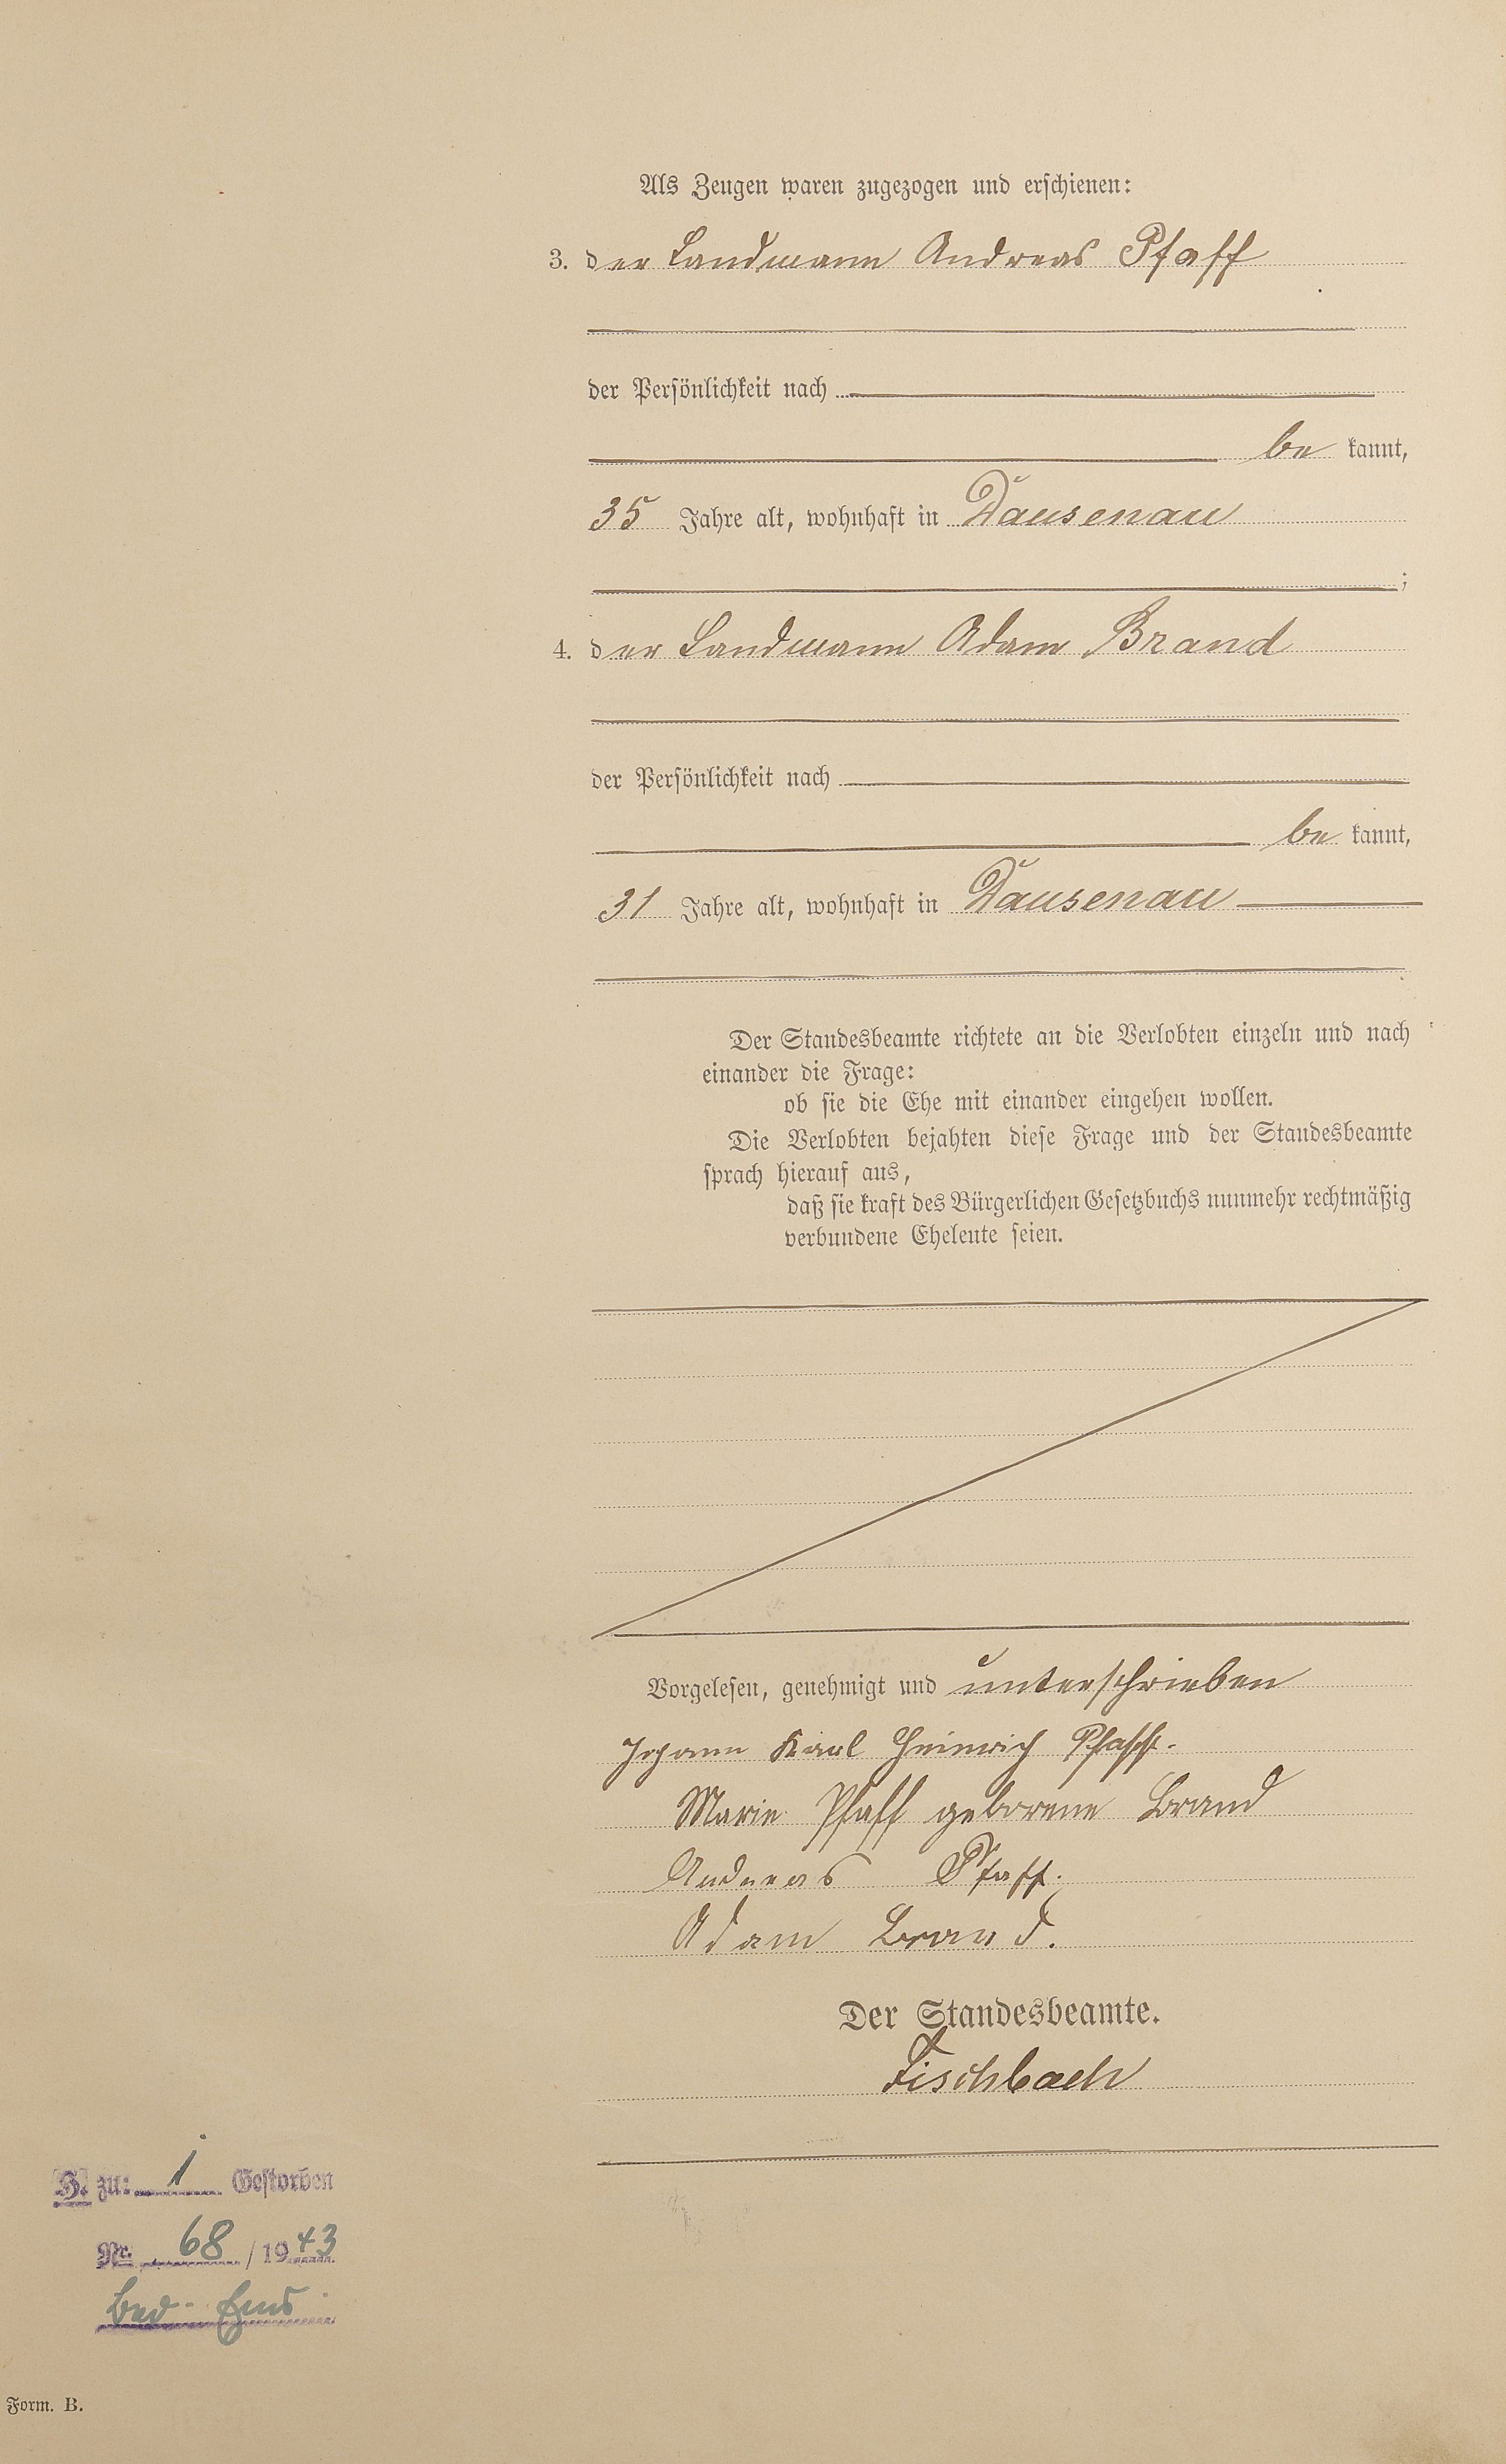 Als Zeugen waren zugezogen und erschienen:
3. der Landmann Andreas Pfaff
der Persönlichkeit nach
be kannt,
35 Jahre alt, wohnhaft in Dausenau
;
4. der Landmann Adam Brand
der Persönlichkeit nach
be kannt,
31 Jahre alt, wohnhaft in Dausenau
Der Standesbeamte richtete an die Verlobten einzeln und nach
einander die Frage:
ob sie die Ehe mit einander eingehen wollen.
Die Verlobten bejahten diese Frage und der Standesbeamte
sprach hierauf aus,
daß sie kraft des Bürgerlichen Gesetzbuchs nunmehr rechtmäßig
verbundene Eheleute seien.
Vorgelesen, genehmigt und unterschrieben
Johann Karl Heinrich Pfaff.
Marie Pfaff geborene Brand
Andreas Pfaff.
Adam Brand.
Der Standesbeamte.
Fischbach
H. zu: 1 Gestorben
Nr. 68 / 1943
Bad-Ems
Form. B.